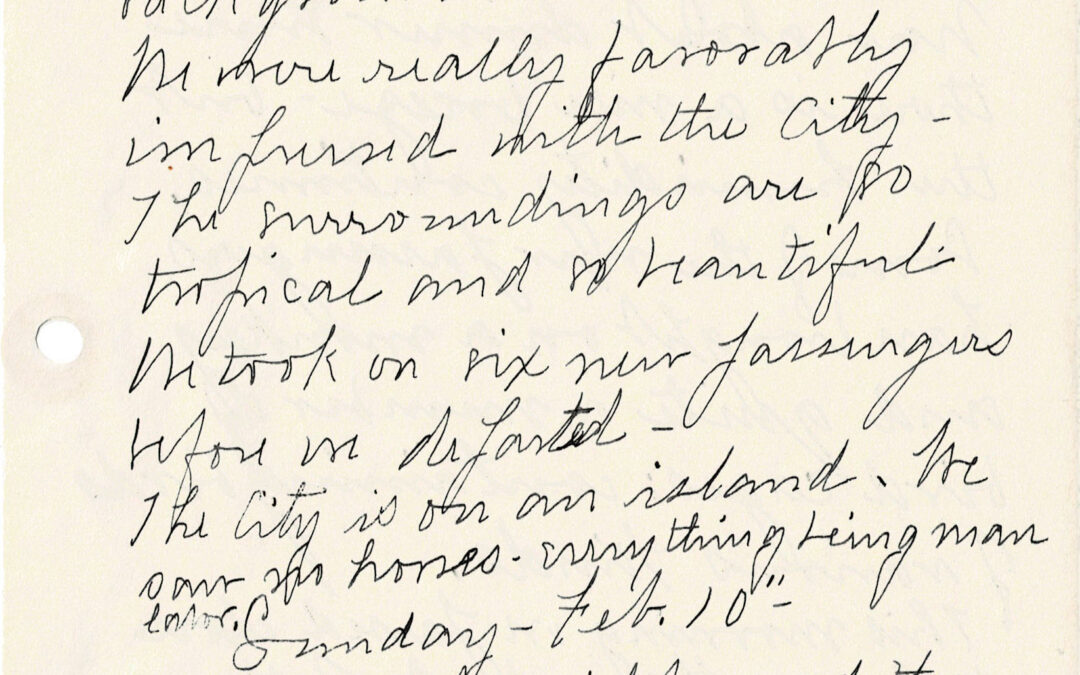 We were really favorably
impressed with the City -
The surroundings are so
tropical and so beautiful.
We took on six new passengers
before we departed -
The City is on an island. We
saw no horses - everything being man
labor.
Sunday - Feb. 10"